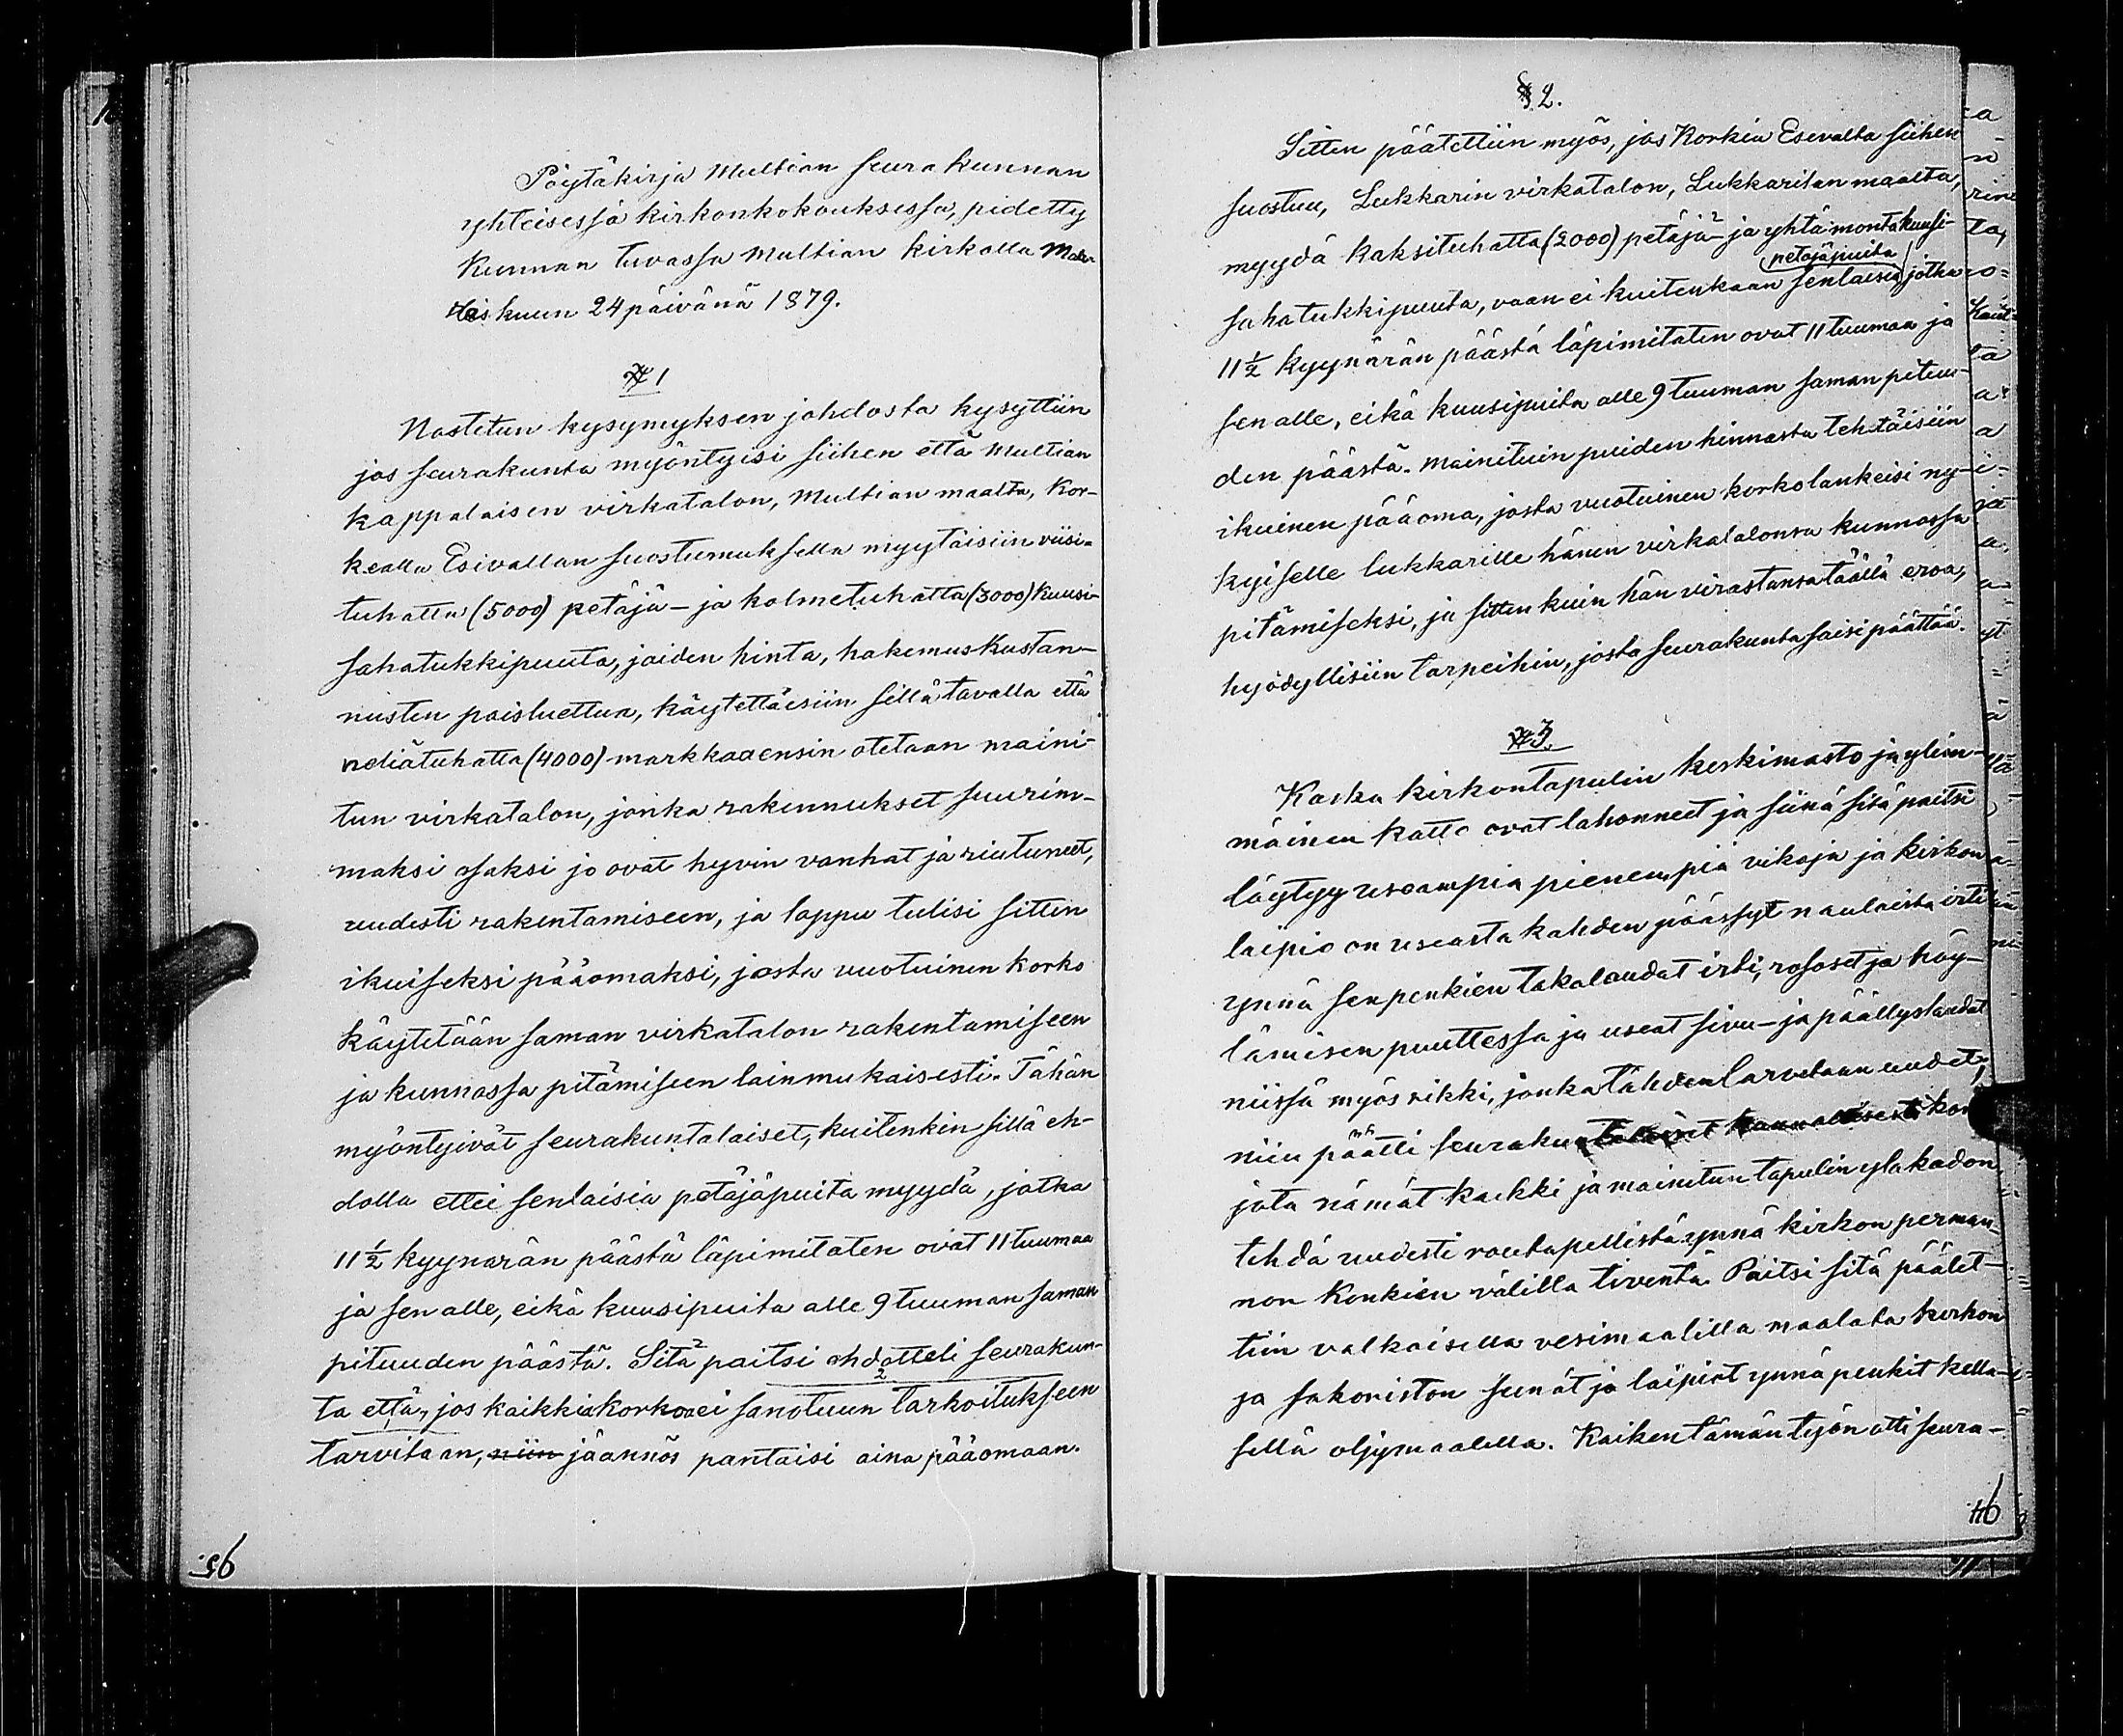 Pöytäkirja Multian seurakunnan
yhteisessä kirkonkokouksessa, pidetty
Kunnan tuvassa Multian kirkolla Mar-
raskuun 24 päivänä 1879.
§ 1
Nostetun kysymyksen johdosta kysyttiin
jos seurakunta myöntyisi siihen että Multian
kappalaisen virkatalon, Multian maalta, Kor-
kealla Esivallan suostumuksella myytäisiin viisi-
tuhatta (5000) petäjä- ja kolmetuhatta (3000) kuusi-
sahatukkipuuta, joiden hinta, hakemus kustan-
nusten poisluettua, käytettäisiin sillä tavalla että
neljätuhatta (4000) markkaa ensin otetaan maini-
tun virkatalon, jonka rakennukset suurim-
maksi osaksi jo ovat hyvin vanhat ja riutuneet,
uudesti rakentamiseen, ja loppu tulisi sitten
ikuiseksi pääomaksi, josta vuotuinen korko
käytetään saman virkatalon rakentamiseen
ja kunnossa pitämiseen lainmukaisesti. Tähän
myöntyivät seurakuntalaiset, kuitenkin sillä eh-
dolla ettei senlaisia petäjäpuita myydä, jotka
11 1/2 kyynärän päästä läpimitaten ovat 11 tuumaa
ja sen alle, eikä kuusipuita alle 9 tuuman saman
pituuden päästä. Sitä paitsi ehdotteli seurakun-
ta että, jos kaikkia korkoa ei sanotuun tarkoitukseen
tarvitaan, niin jäännös pantaisi aina pääomaan.
95.
§ 2.
Sitten päätettiin myös, jos Korkia Esivalta siihen
suostuu, Lukkarin virkatalon, Lukkarilan maalta,
myydä kaksituhatta (2000) petäjä- ja yhtä monta kuusi-
petäjäpuita
sahatukkipuuta, vaan ei kuitenkaan senlaisia jotka
11 1/2 kyynärän päästä läpimitaten ovat 11 tuumaa ja
sen alle, eikä kuusipuita alle 9 tuuman saman pituu-
den päästä. Mainituin puiden hinnasta tehtäisiin
ikuinen pääoma, josta vuotuinen korko lankeisi ny-
kyiselle lukkarille hänen virkatalonsa kunnossa
pitämiseksi, ja sitten kuin hän virastansa täällä eroa,
hyödyllisiin tarpeihin, josta seurakunta saisi päättää.
§ 3.
Koska kirkontapulin keskimasto ja ylim-
mäinen katto ovat lahonneet ja siinä sitä paitsi
löytyy useampia pienempiä vikoja ja kirkon
laipio on useasta kahden päässyt naulaista irti
ynnä sen penkien takalaudat irti, rososet ja höy-
lämisen puuttessa ja useat sivu- ja päällyslaudat
niissä myös rikki, jonka tähden tarvetaan uudet,
niin päätti seurakunta
jata nämät kaikki ja mainitun tapulin ylakadon
tehdä uudesti rautapellistä ynnä kirkon perman-
non konkien välillä tiventä. Paitsi sitä päätet-
tiin valkoisella vesimaalilla maalata kirkon
ja sakoriston seinät ja laipiot ynnä penkit kella-
sellä oljymaalella. Kaiken tämän työn otti seura-